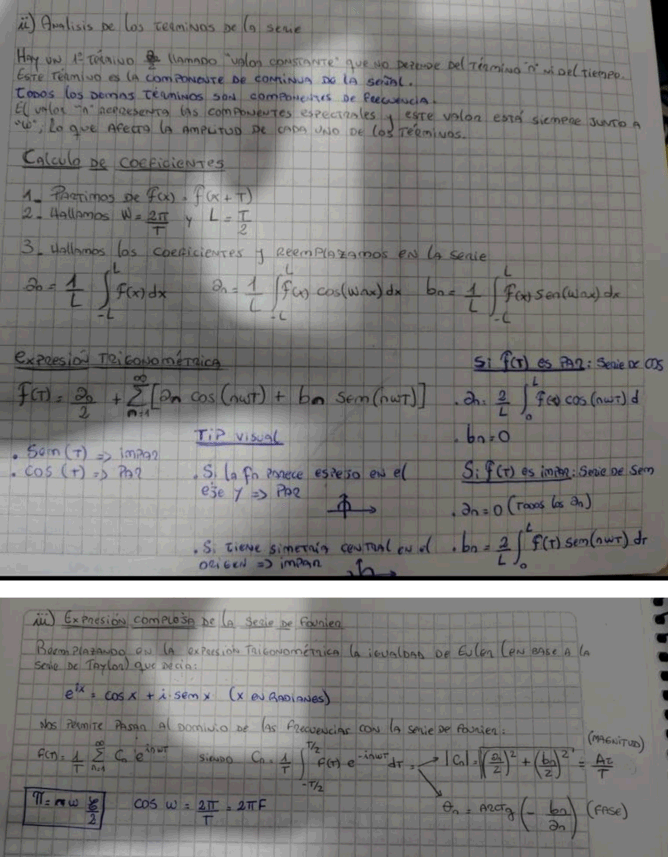 ii) Analisis de los terminos de la serie
Hay un 1º término llamado "valor constante" que no depende del término "n" ni del tiempo.
Este término es la componente de continua de la señal.
Todos los demás términos son componentes de frecuencia.
El valor "n" representa las componentes espectrales y este valor está siempre junto a
"ω", lo que afecta la amplitud de cada uno de los términos.
Calculo de coeficientes
1_ Partimos de f(x) = f(x + T)
2_ Hallamos W = 2π/T y L = T/2
3_ Hallamos los coeficientes y reemplazamos en la serie
a₀ = 1/L ∫_{-L}^{L} f(x) dx aₙ = 1/L ∫_{-L}^{L} f(x) cos(wnx) dx bₙ = 1/L ∫_{-L}^{L} f(x) sen(wnx) dx
Expresión trigonométrica
f(t) = a₀/2 + Σ_{n=1}^{∞} [aₙ cos(nωt) + bₙ sen(nωt)]
. Sen(t) => impar
. cos(t) => Par
Tip visual
. Si la fn parece espejo en el
eje y => Par
. Si tiene simetría central en el
origen => impar
Si f(t) es Par: Serie de cos
. aₙ = 2/L ∫_{0}^{L} f(t) cos(nωt) d
. bₙ = 0
Si f(t) es impar: Serie de Sen
. aₙ = 0 (Todos los aₙ)
. bₙ = 2/L ∫_{0}^{L} f(t) sen(nωt) dt
iii) Expresión compleja de la serie de Fourier
Reemplazando en la expresión trigonométrica la igualdad de Euler (en base a la
serie de Taylor) que decía:
e^{ix} = cos x + i sen x (x en radianes)
Nos permite pasar al dominio de las frecuencias con la serie de Fourier:
f(t) = 1/T Σ_{n=1}^{∞} Cₙ e^{inωt} siendo Cₙ = 1/T ∫_{-T/2}^{T/2} f(t) e^{-inωt} dt => |Cₙ| = √((aₙ/2)² + (bₙ/2)²) = Aτ/T (Magnitud)
θₙ = Arctg(- bₙ/aₙ) (Fase)
π = nω τ/2 cos w = 2π/T = 2πF